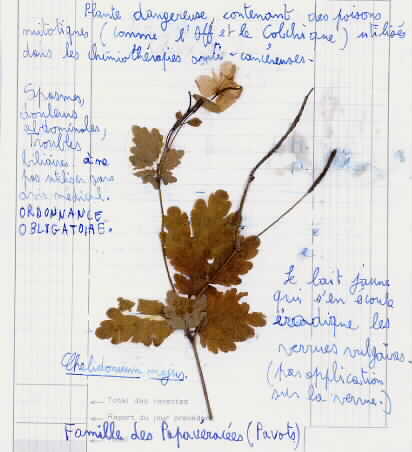 Plante dangereuse contenant des poisons
mitotiques (comme l'If et le Colchique) utilisés
dans les chimiothérapies anti-cancéreuses.
Spasmes,
douleurs
abdominales,
Troubles
biliaires à ne
pas utiliser sans
avis médical.
ORDONNANCE
OBLIGATOIRE.
Le lait jaune
qui s'en écoule
éradique les
verrues vulgaires.
(par application
sur la verrue.)
Chelidonium majus.
Total des recettes
Report du jour précédent
Famille des Papavéracées (Pavots)